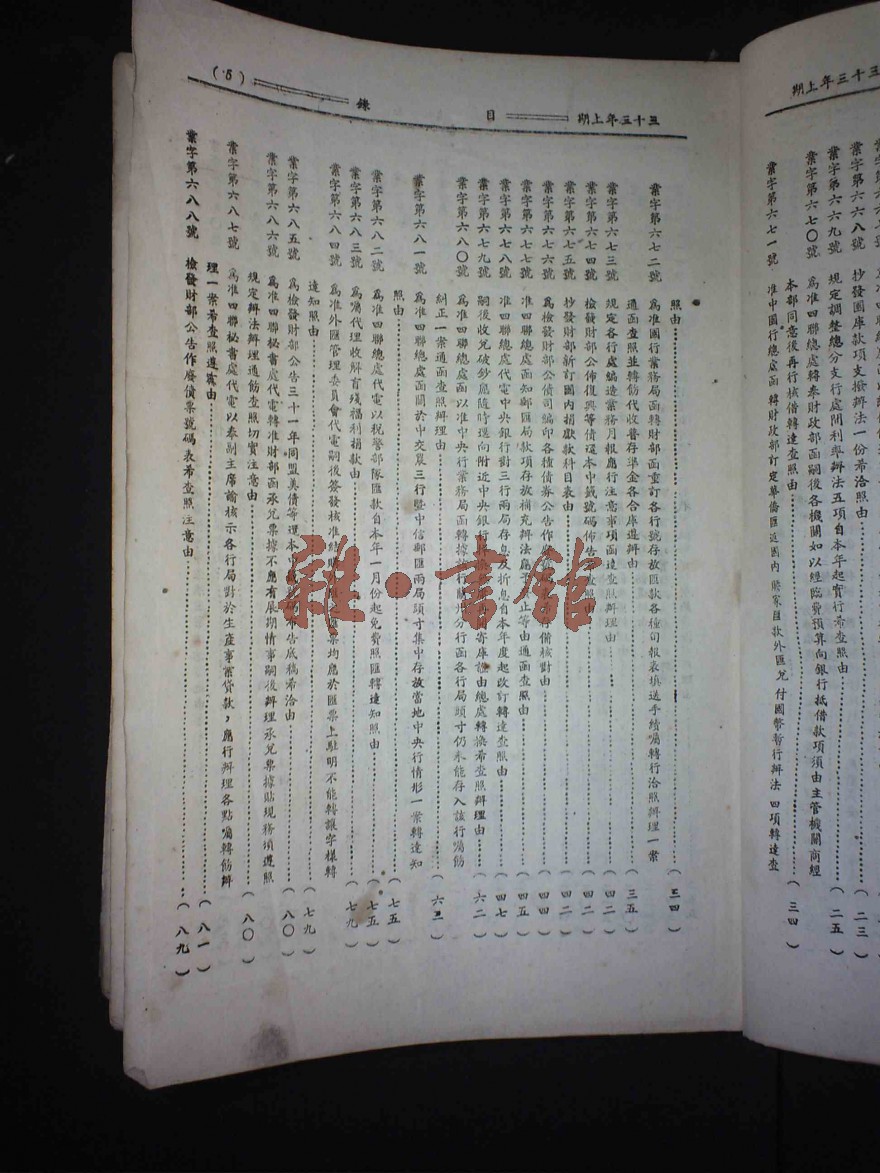 三十三年上期
業字第六六八號 抄發國庫款項支撥辦法一份希洽照由（二三）
業字第六六九號 規定調整總分支行處間利率辦法五項自本年起實行希查照由（二五）
業字第六七〇號 為准四聯總處轉奉財政部函嗣後各機關如以經臨費預算向銀行抵借款項須由主管機關商經
本部同意後再行核借轉達查照由（三四）
業字第六七一號 准中國行總處函轉財政部訂定華僑匯返國內 匯款外匯兌付國幣暫行辦法四項轉達查
三十三年上期 目 錄 （5）
照由（三四）
業字第六七二號 為准國行業務局函轉財部函重訂各行號存放匯款各種旬報表填送手續囑轉行洽照辦理一案
通函查照並轉飭代收普存準金各合庫遵辦由（三五）
業字第六七三號 規定各行處編造業務月報應行注意事項函達查照辦理由（四二）
業字第六七四號 檢發財部公佈復興等債還本中籤號碼佈告 照由（四二）
業字第六七五號 抄發財部新訂國內捐獻款科目表由（四二）
業字第六七六號 為檢發財部公債司編印各種債券公告作廢 備核對由（四四）
業字第六七七號 為准四聯總處函知郵匯局款項存放補充辦法應予 止等由通函查照由（四五）
業字第六七八號 准四聯總處代電中央銀行對三行兩局存息及折息 本年度起改訂轉達查照由（四七）
業字第六七九號 嗣後收兌破鈔應隨時送向附近中央銀行轉換 再開寄庫證由總處轉換希查照辦理由（六二）
業字第六八〇號 為准四聯總處函以准中央行業務局函轉據 行蘭州分行函各行局頭寸仍未能存入該行囑飭
糾正一案通函查照辦理由（六三）
業字第六八一號 為准四聯總處函關於中交農三行暨中信郵匯兩局頭寸集中存放當地中央行情形一案轉達知
照由（七五）
業字第六八二號 為准四聯總處代電以稅警部隊匯款自本年一月份起免費照匯轉達知照由（七五）
業字第六八三號 為囑代理收解盲殘福利捐款由（七九）
業字第六八四號 為准外匯管理委員會代電嗣後簽發核准結 匯票均應於匯票上註明不能轉讓字樣轉
達知照由（七九）
業字第六八五號 為檢發財部公告三十一年同盟美債等還本 號碼布告底稿希洽由（八〇）
業字第六八六號 為准四聯秘書處代電轉准財部函承兌票據不應有展期情事嗣後辦理承兌票據貼現務須遵照
規定辦法辦理通飭查照切實注意由（八〇）
業字第六八七號 為准四聯秘書處代電以奉副主席諭核示各行局對於生產事業貸款，應行辦理各點囑轉飭辦
理一案希查照遵辦由（八一）
業字第六八八號 檢發財部公告作廢債票號碼表希查照注意由（八九）
雜·書館